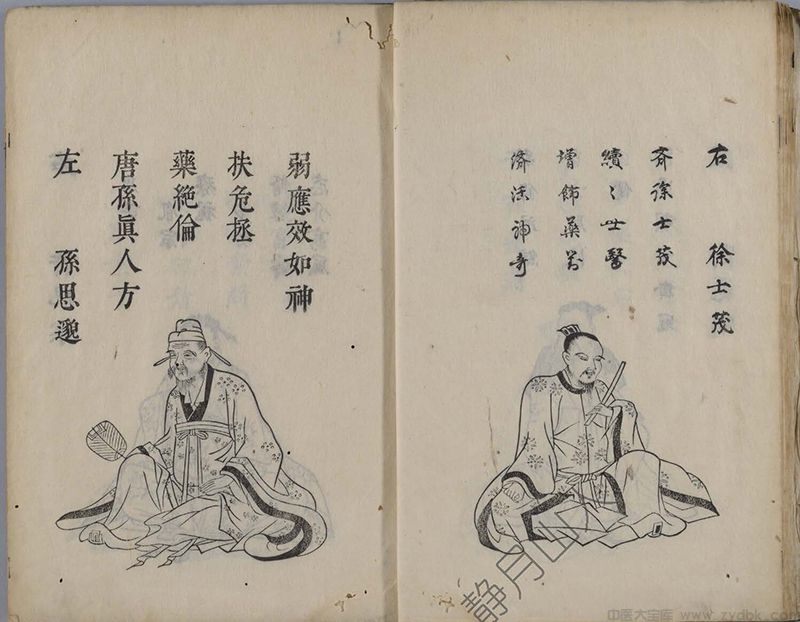 右 徐士茂
斉徐士茂
續〻世醫
增飾藥
濟 神奇
左 孫思邈
唐孫眞人方
藥絶倫
扶危拯
弱應效如神
静月幽
中医大宝库 www.zydbk.com